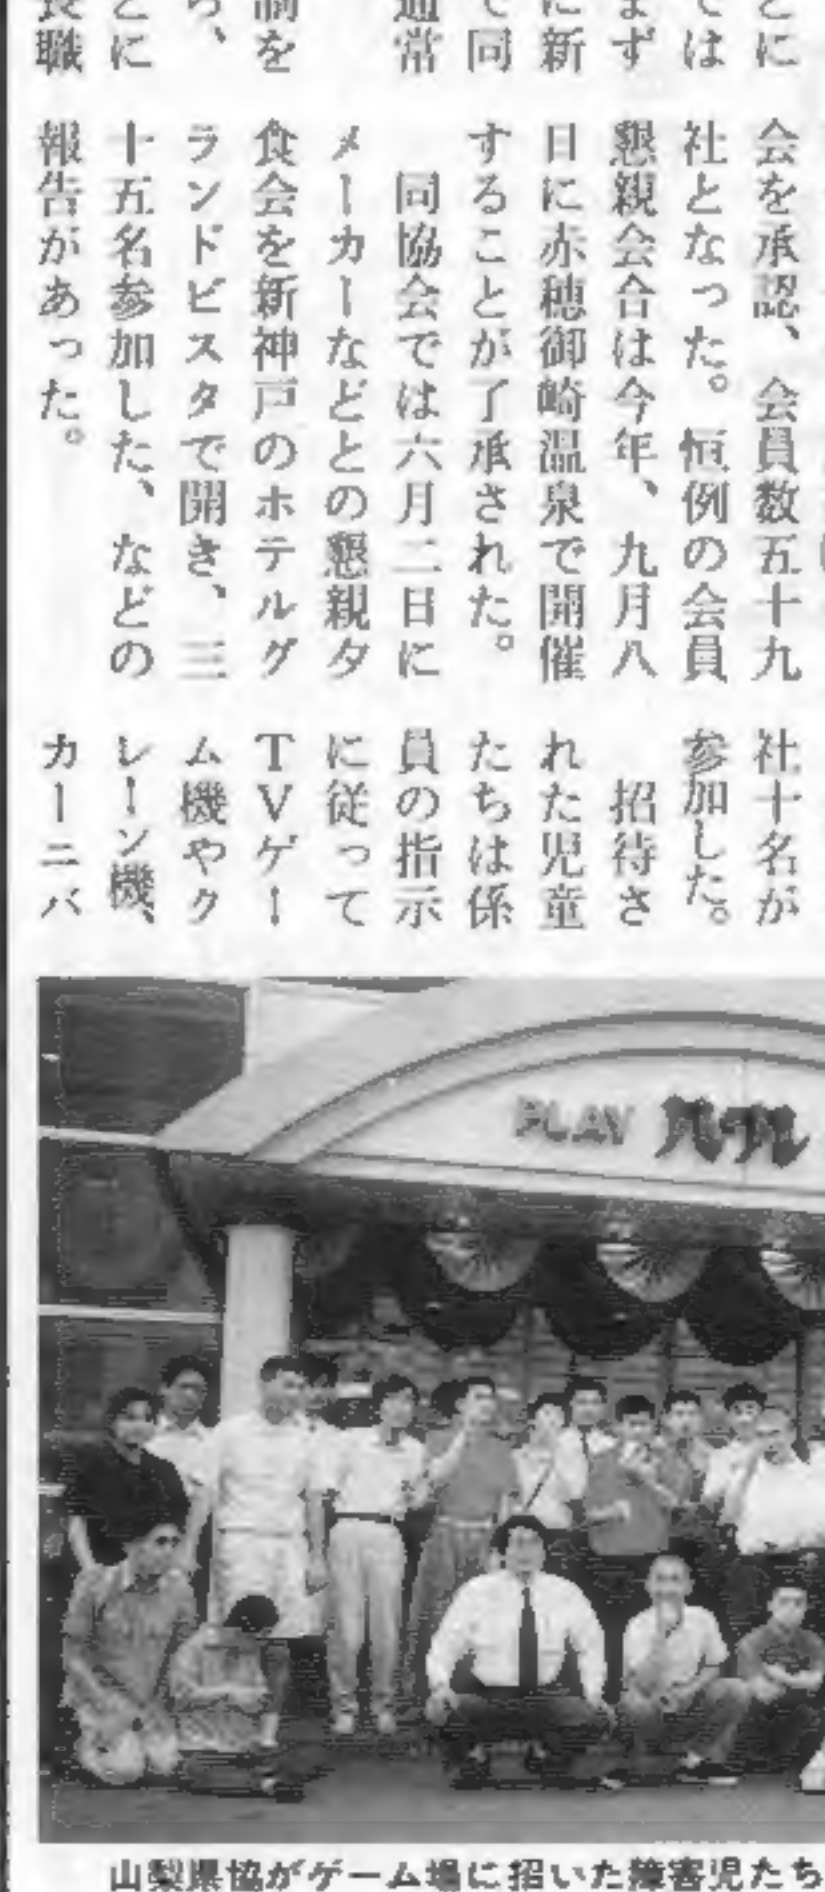 とに
では
まず
に新
で同
通常
調を
ら、
とに
長職
会を承認、会員数五十九
社となった。恒例の会員
懇親会合は今年、九月八
日に赤穂御崎温泉で開催
することが了承された。
同協会では六月二日に
メーカーなどとの懇親夕
食会を新神戸のホテルグ
ランドビスタで開き、三
十五名参加した、などの
報告があった。
社十名が
参加した。
招待さ
れた児童
たちは係
員の指示
に従って
TVゲー
ム機やク
レーン機、
カーニバ
PLAY バブル
山梨県協がゲーム場に招いた障害児たち